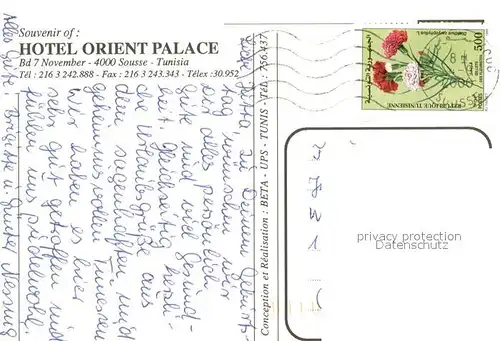 Souvenir of :
HOTEL ORIENT PALACE
Bd 7 November - 4000 Sousse - Tunisia
Tél : 216 3 242.888 - Fax : 216 3 243.343 - Télex :30.952
Conception et Réalisation : BETA - UPS - TUNIS - Tél. : 756.437
500
REPUBLIQUE TUNISIENNE
Dianthus caryophyllus L.
zu Deinem Geburts-
tag wünschen wir
Dir alles persönlich
Gute und viel Gesund-
heit. Gleichzeitig herzli-
che Urlaubsgrüße aus
dem sagenhaften und
geheimnisvollen Tunesien
wir haben es hier
sehr gut getroffen und
fühlen uns pudelwohl.
Alles Gute, Brigitte u.
privacy protection
Datenschutz